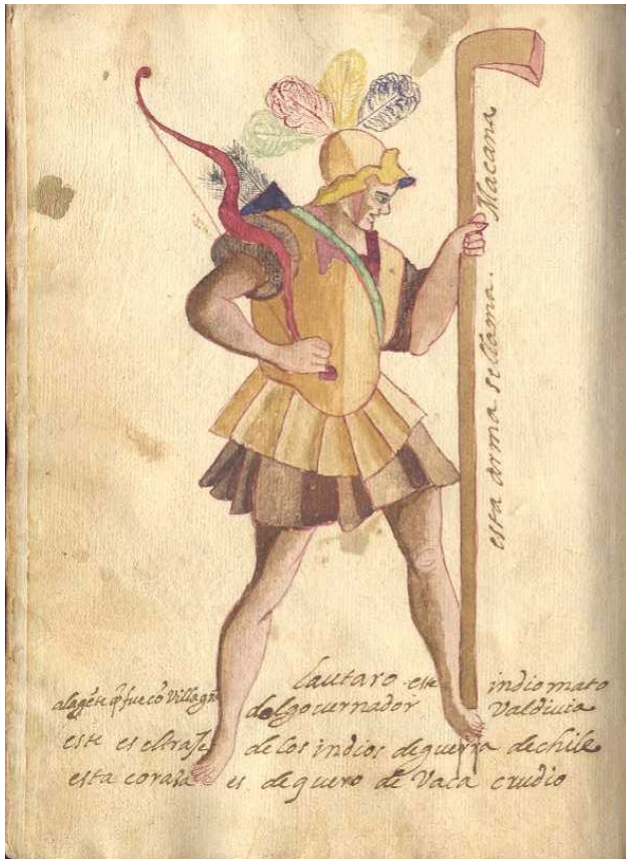 esta arma se llama. Macana
lautaro este indio mato
alagẽte q̃ fue cõ Villagra del governador Valdivia
este es el traje de los indios de guerra de chile
esta coraza es de quero de Vaca crudio